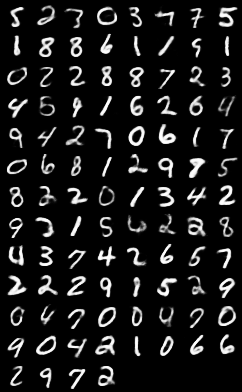 5 2 7 0 3 7 7 5
1 8 8 6 1 1 9 1
0 2 2 8 8 7 2 3
4 5 9 1 6 2 6 4
9 4 2 7 0 6 1 7
0 6 8 1 2 9 8 5
8 2 2 0 1 3 4 2
9 3 1 5 6 2 2 8
4 3 7 4 2 6 5 7
2 2 2 9 9 5 2 9
0 4 7 0 0 4 7 0
9 0 4 2 1 0 6 6
2 9 7 2